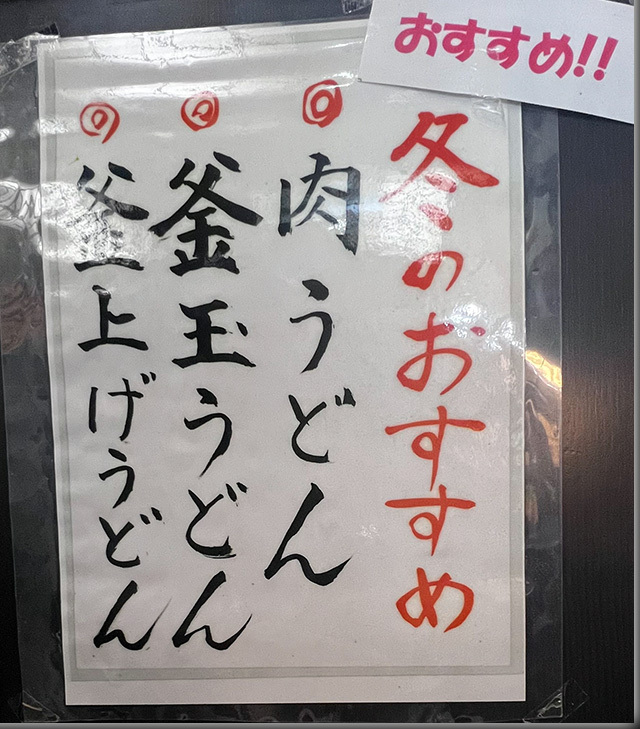 おすすめ!!
冬のおすすめ
◎肉うどん
◎釜玉うどん
◎釜上げうどん